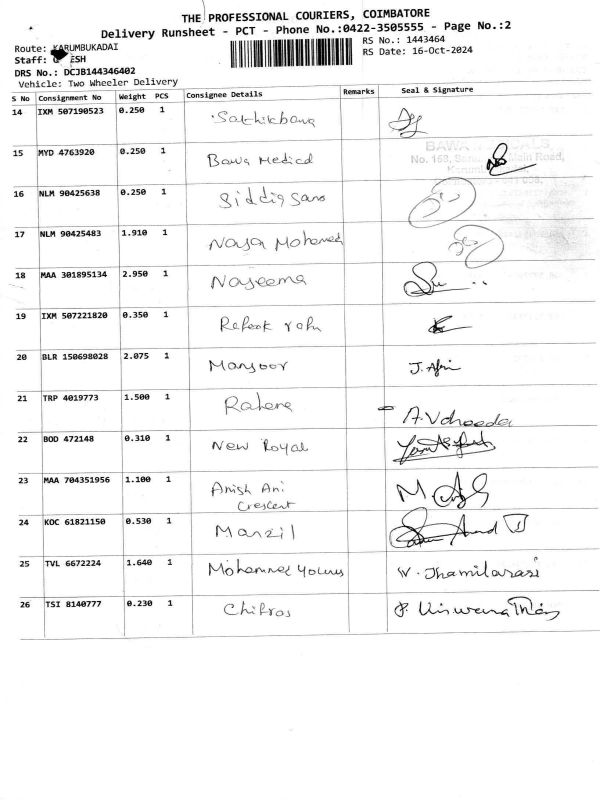 THE PROFESSIONAL COURIERS, COIMBATORE
Delivery Runsheet - PCT - Phone No.:0422-3505555 - Page No.:2
Route: KARUMBUKADAI
RS No.: 1443464
Staff: ESH
RS Date: 16-Oct-2024
DRS No.: DCJB144346402
Vehicle: Two Wheeler Delivery
S No Consignment No Weight PCS Consignee Details Remarks Seal & Signature
14 IXM 507190523 0.250 1
15 MYD 4763920 0.250 1 Bawa Medical
No. 163, Main Road,
16 NLM 90425638 0.250 1
17 NLM 90425483 1.910 1 Mohamed
18 MAA 301895134 2.950 1 Najeema
19 IXM 507221820 0.350 1
20 BLR 150698028 2.075 1 Mansoor
21 TRP 4019773 1.500 1 Rahena
22 BOD 472148 0.310 1 New Royal
23 MAA 704351956 1.100 1 Anish Ani
Crescent
24 KOC 61821150 0.530 1 Manzil
25 TVL 6672224 1.640 1 W. Jhamilarasi
26 TSI 8140777 0.230 1 P.